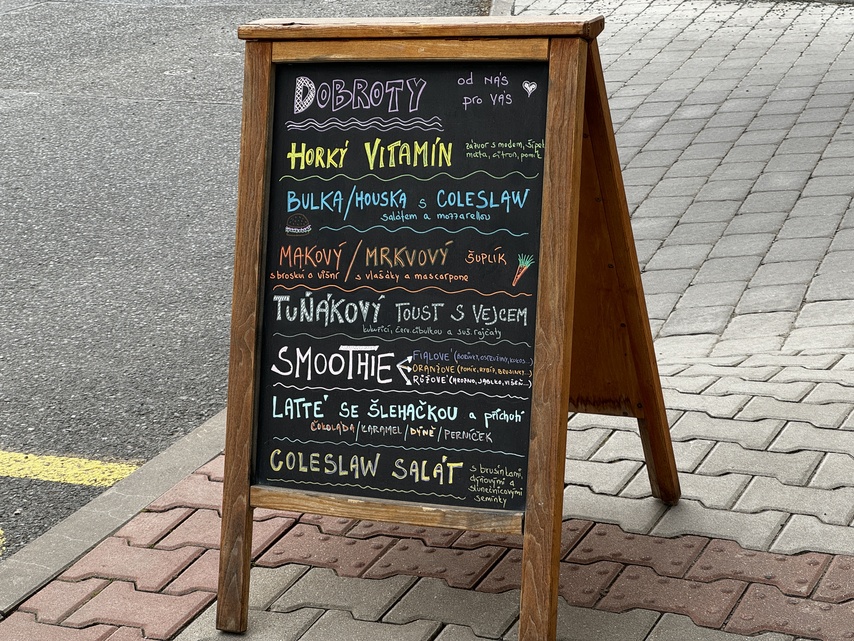 DOBROTY od NÁS
pro VÁS
HORKÝ VITAMÍN zázvor s medem, šípek
máta, citron, pomer
BULKA/HOUSKA s COLESLAW
salátem a mozzarellou
MAKOVÝ/MRKVOVÝ ŠUPLÍK
s broskví a višní s vlašáky a mascarpone
TUŇÁKOVÝ TOUST S VEJCEM
kukuřicí, červ. cibulkou a suš. rajčaty
SMOOTHIE
FIALOVÉ (BORŮVKY, OSTRUŽINY, KOKOS...)
ORANŽOVÉ (POMER, BRUSINKY...)
RŮŽOVÉ (HROZNO, JABLKO, VIŠEŇ...)
LATTÉ SE ŠLEHAČKOU a příchutí
ČOKOLÁDA/KARAMEL/DÝNĚ/PERNÍČEK
COLESLAW SALÁT s brusinkami,
dýňovými a
slunečnicovými
semínky